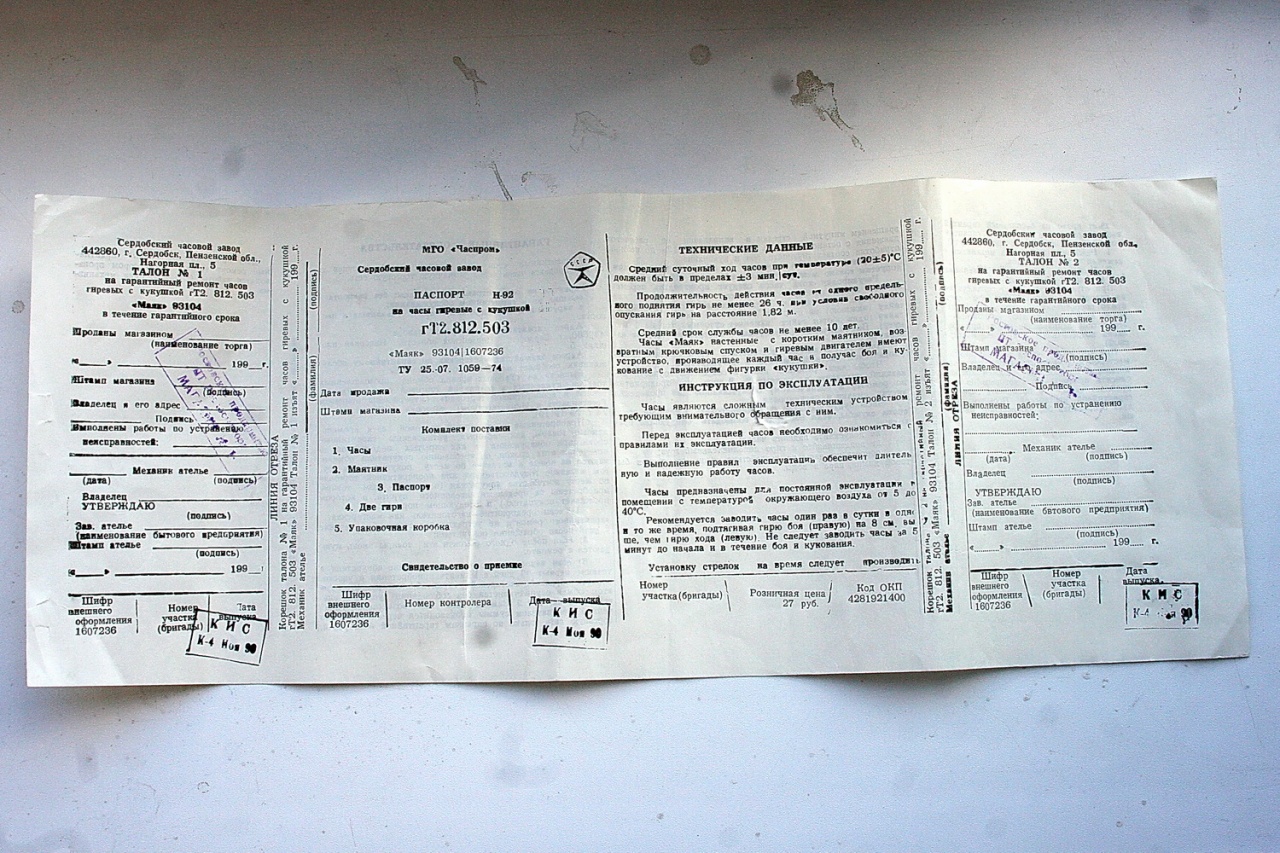 Сердобский часовой завод
442860, г. Сердобск, Пензенской обл.,
Нагорная пл., 5
ТАЛОН № 1
на гарантийный ремонт часов
гиревых с кукушкой гТ2. 812. 503
«Маяк» 93104
в течение гарантийного срока
Проданы магазином
(наименование торга)
« » 199 г.
Штамп магазина
(подпись)
Владелец и его адрес
Подпись
Выполнены работы по устранению
неисправностей:
Механик ателье
(дата) (подпись)
Владелец
УТВЕРЖДАЮ
(подпись)
Зав. ателье
(наименование бытового предприятия)
Штамп ателье
(подпись)
« » 199
Шифр внешнего оформления 1607236
Номер участка (бригады)
Дата выпуска
КИС
К-4 Ноя 90
ЛИНИЯ ОТРЕЗА
Корешок талона № 1 на гарантийный ремонт часов гиревых с кукушкой
гТ2. 812. 503 «Маяк» 93104 Талон № 1 изъят « » 199 г.
Механик ателье (фамилия) (подпись)
МГО «Часпром»
Сердобский часовой завод
ПАСПОРТ Н-92
на часы гиревые с кукушкой
гТ2.812.503
«Маяк» 93104 1607236
ТУ 25-07. 1059—74
Дата продажа
Штамп магазина
Комплект поставки
1. Часы
2. Маятник
3. Паспорт
4. Две гири
5. Упаковочная коробка
Свидетельство о приемке
Шифр внешнего оформления 1607236
Номер контролера
Дата выпуска
КИС
К-4 Ноя 90
ТЕХНИЧЕСКИЕ ДАННЫЕ
Средний суточный ход часов при температуре (20±5)°С
должен быть в пределах ±3 мин/сут.
Продолжительность действия часов от одного предель-
ного поднятия гирь не менее 26 ч. при условии свободного
опускания гирь на расстояние 1,82 м.
Средний срок службы часов не менее 10 лет.
Часы «Маяк» настенные с коротким маятником, воз-
вратным крючковым спуском и гиревым двигателем имеют
устройство, производящее каждый час и получас бои и ку-
кование с движением фигурки «кукушки».
ИНСТРУКЦИЯ ПО ЭКСПЛУАТАЦИИ
Часы являются сложным техническим устройством
требующим внимательного обращения с ним.
Перед эксплуатацией часов необходимо ознакомиться с
правилами их эксплуатации.
Выполнение правил эксплуатации обеспечит длитель
ную и надежную работу часов.
Часы предназначены для постоянной эксплуатации в
помещении с температурой окружающего воздуха от 5 до
40°С.
Рекомендуется заводить часы один раз в сутки в одно
и то же время, подтягивая гирю боя (правую) на 8 см, вы
ше, чем гирю хода (левую). Не следует заводить часы за 5
минут до начала и в течение боя и кукования.
Установку стрелок на время следует производи
Номер участка(бригады)
Розничная цена 27 руб.
Код ОКП 4281921400
Корешок талона гиревых с кукушкой
гТ2. 812. 503 «Маяк» 93104 Талон № 2 изъят « » 199 г.
Механик ателье (фамилия) (подпись)
ЛИНИЯ ОТРЕЗА
Сердобский часовой завод
442860, г. Сердобск, Пензенской обл.,
Нагорная пл., 5
ТАЛОН № 2
на гарантийный ремонт часов
гиревых с кукушкой гТ2. 812. 503
«Маяк» 93104
в течение гарантийного срока
Проданы магазином
(наименование торга)
« » 199 г.
Штамп магазина
(подпись)
Владелец и его адрес
Подпись
Выполнены работы по устранению
неисправностей:
Механик ателье
(дата) (подпись)
Владелец
(подпись)
УТВЕРЖДАЮ
Зав. ателье
(наименование бытового предприятия)
Штамп ателье
(подпись)
« » 199 г.
Шифр внешнего оформления 1607236
Номер участка (бригады)
Дата выпуска.
КИС
К-4 90